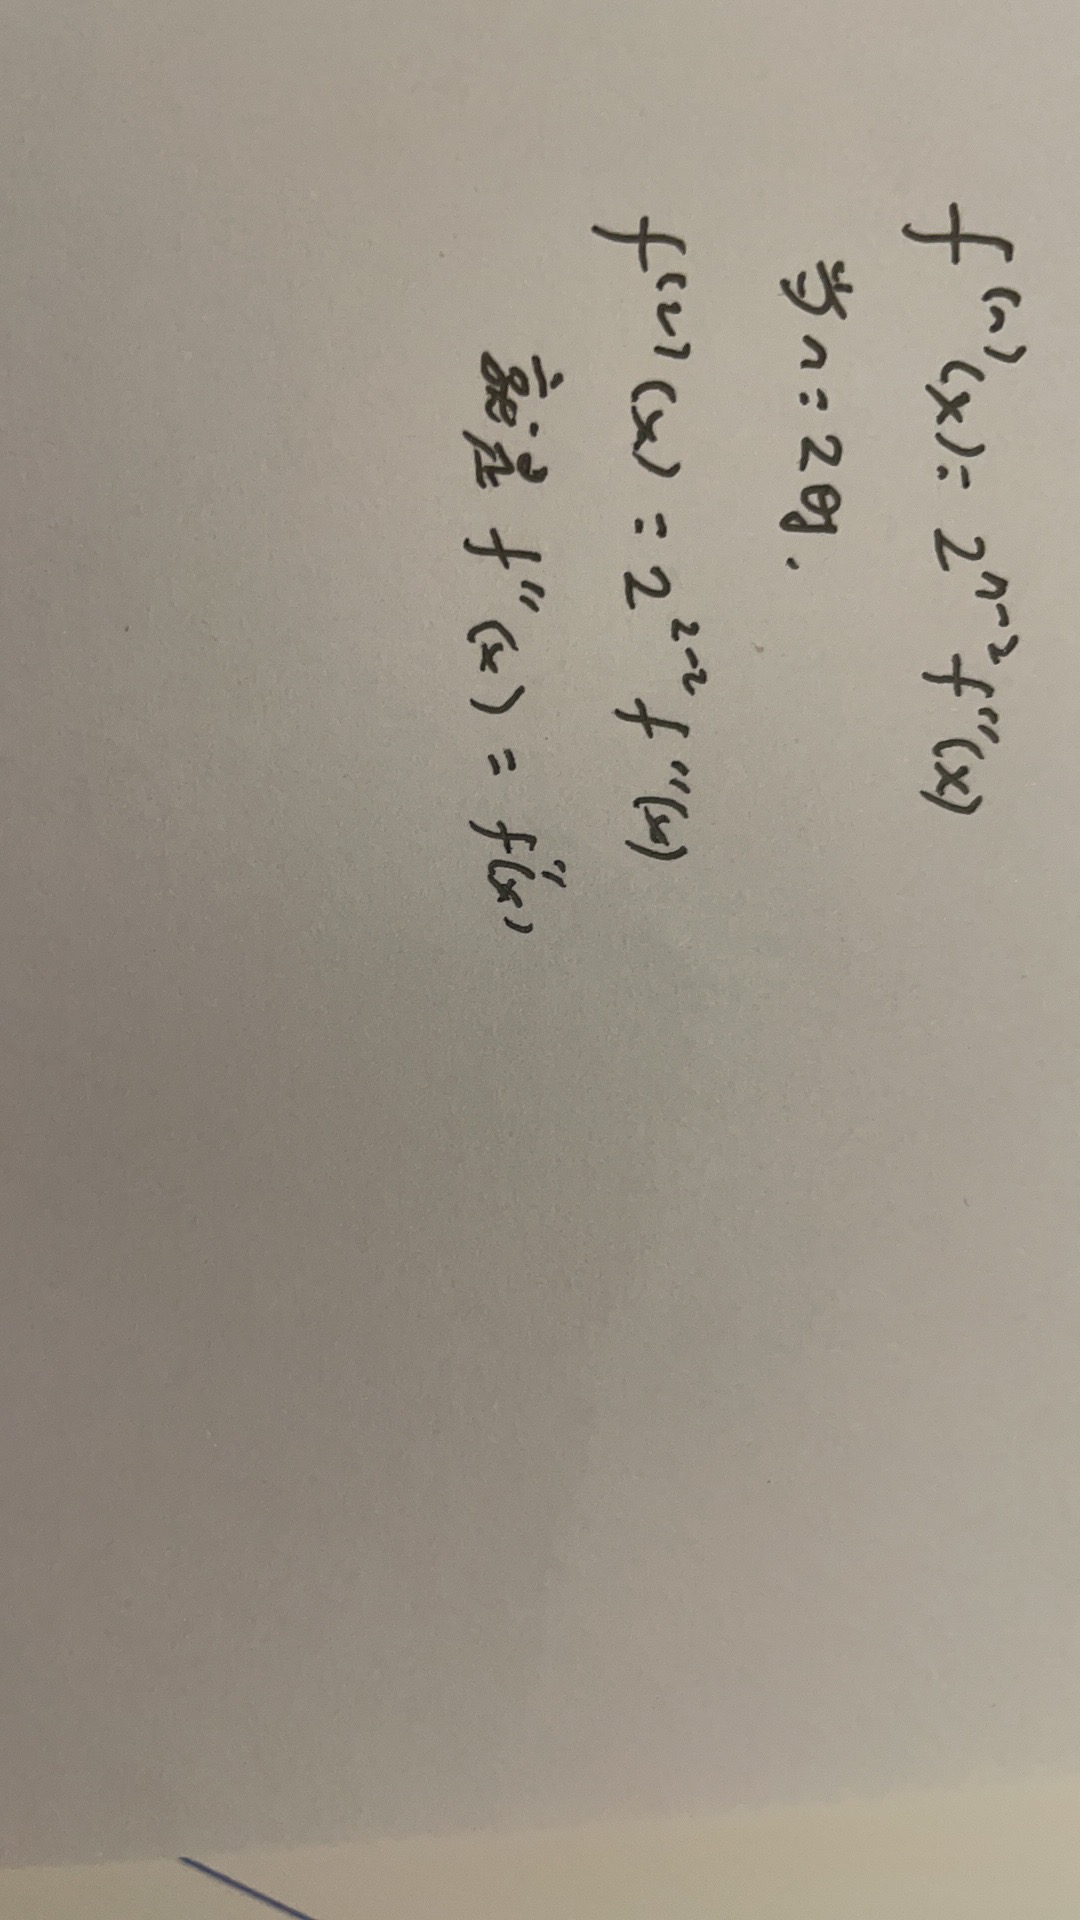 f⁽ⁿ⁾(x) = 2ⁿ⁻² f''(x)
当 n = 2时.
f⁽²⁾(x) = 2²⁻² f''(x)
f''(x) = f''(x)